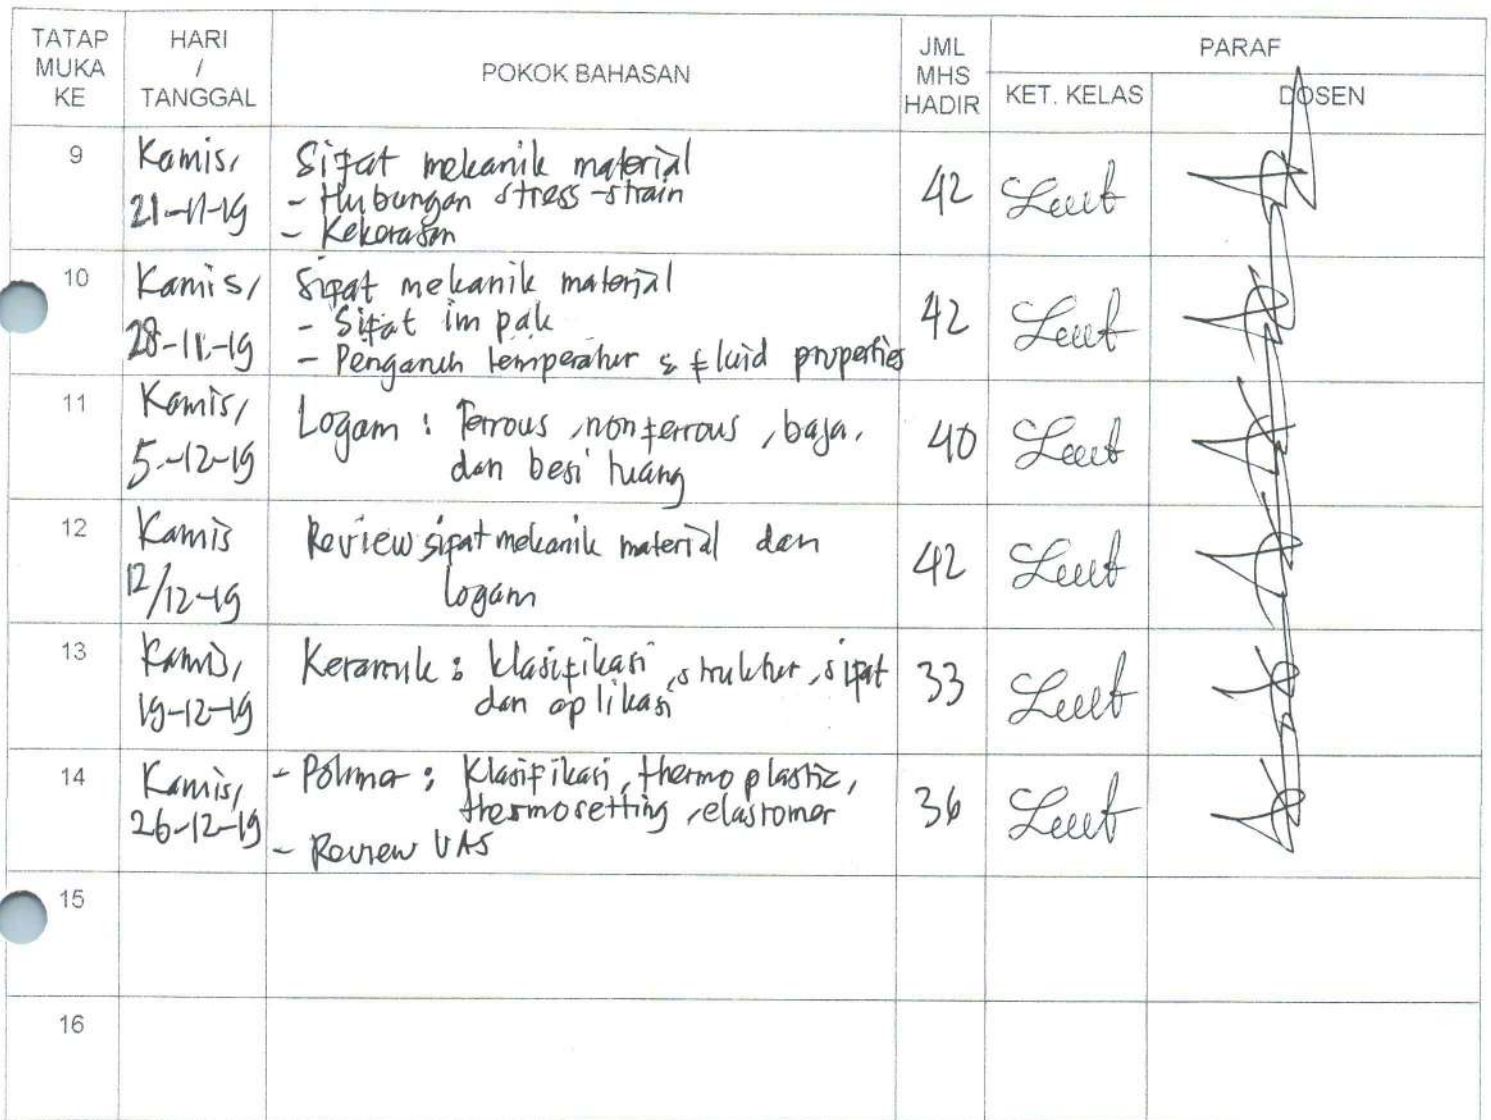 TATAP MUKA KE
HARI / TANGGAL
POKOK BAHASAN
JML MHS HADIR
PARAF
KET. KELAS
DOSEN
9
Kamis,
21-11-19
Sifat mekanik material
- Hubungan stress-strain
- Kekerasan
42
10
Kamis,
28-11-19
Sifat mekanik material
- Sifat impak
- Pengaruh temperatur & fluid properties
42
11
Kamis,
5-12-19
Logam : Ferrous, nonferrous, baja,
dan besi tuang
40
12
Kamis
12/12-19
Review sifat mekanik material dan
logam
42
13
Kamis,
19-12-19
Keramik : klasifikasi, struktur, sifat
dan aplikasi
33
14
Kamis,
26-12-19
- Polimer : Klasifikasi, thermoplastic,
thermosetting, elastomer
- Review UAS
36
15
16